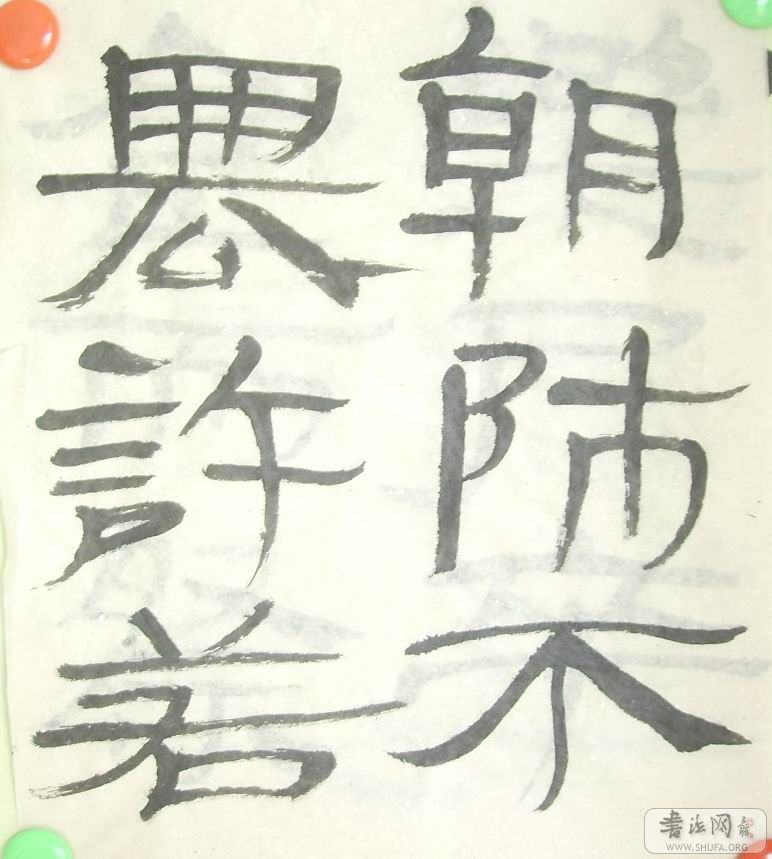 朝師不
許若
书法网
WWW.SHUFA.ORG